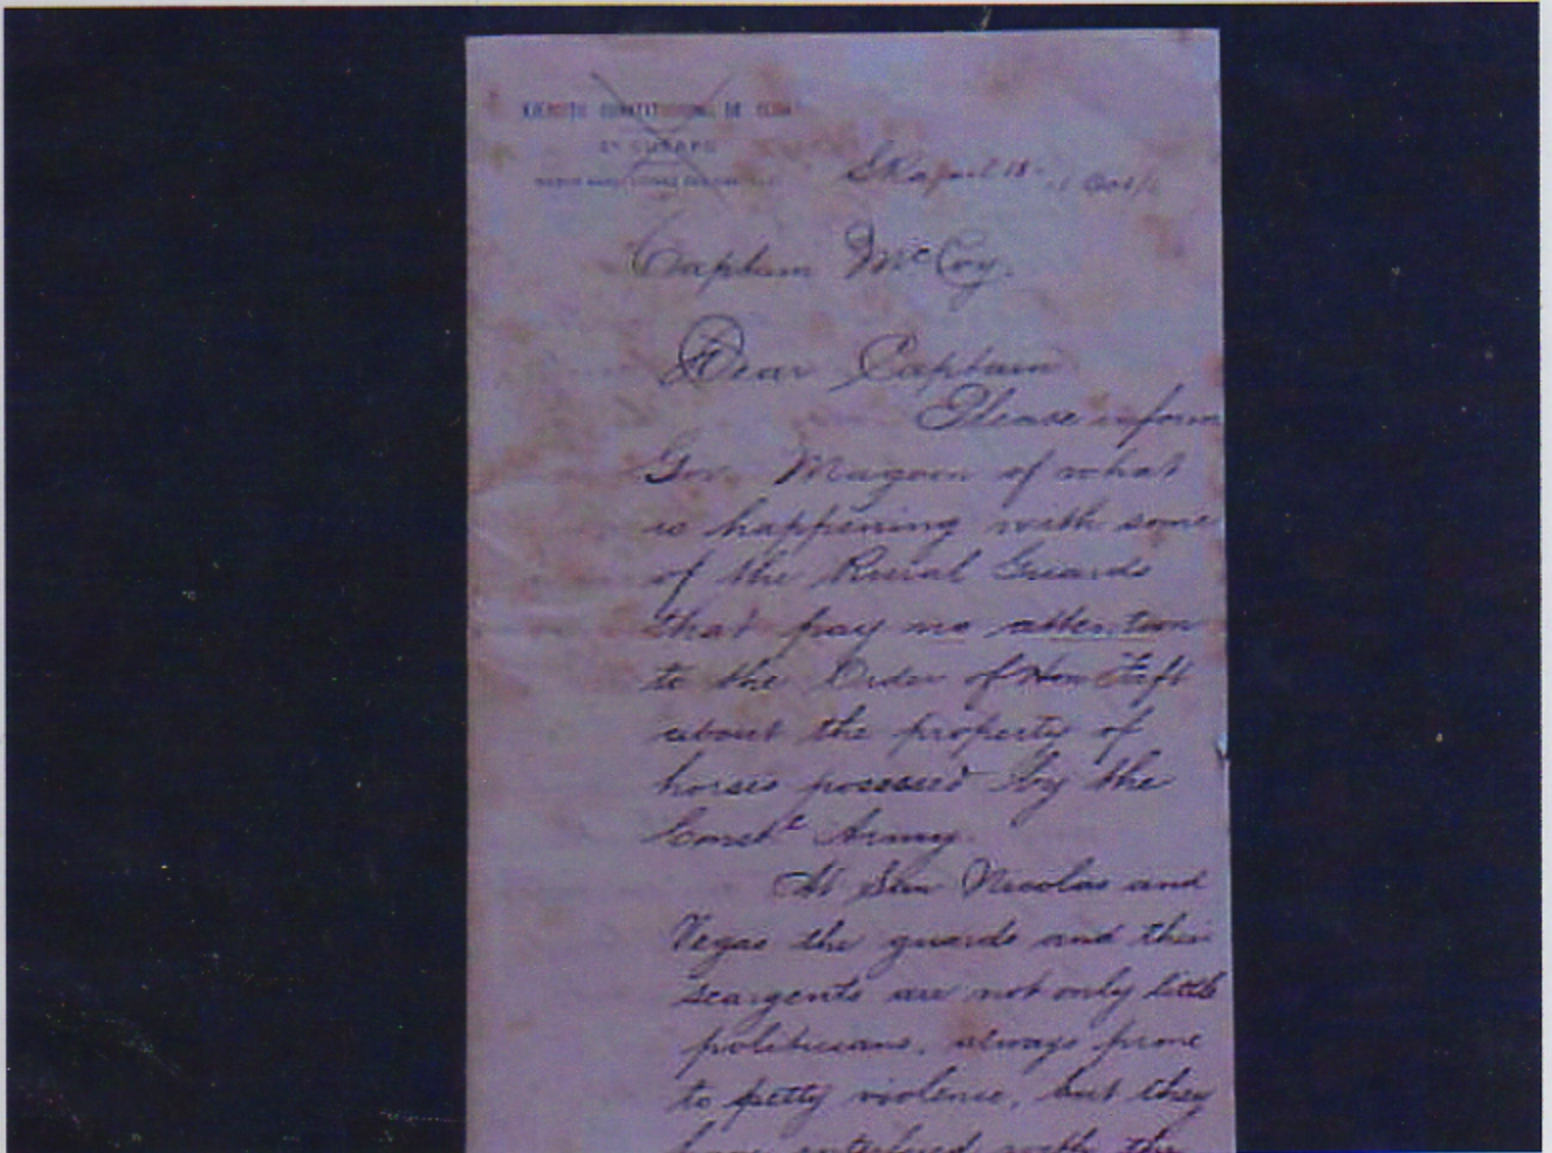 EJERCITO CONSTITUCIONAL DE CUBA
Captain McCoy.
Dear Captain
Please inform
Gov. Magoon of what
is happening with some
of the Rural Guards
that pay no attention
to the Order of Hon Taft
about the property of
horses posessed by the
Constl Army.
At San Nicolas and
Vegas the guards and their
seargents are not only little
politicians, always prone
to petty violence, but they
have with the